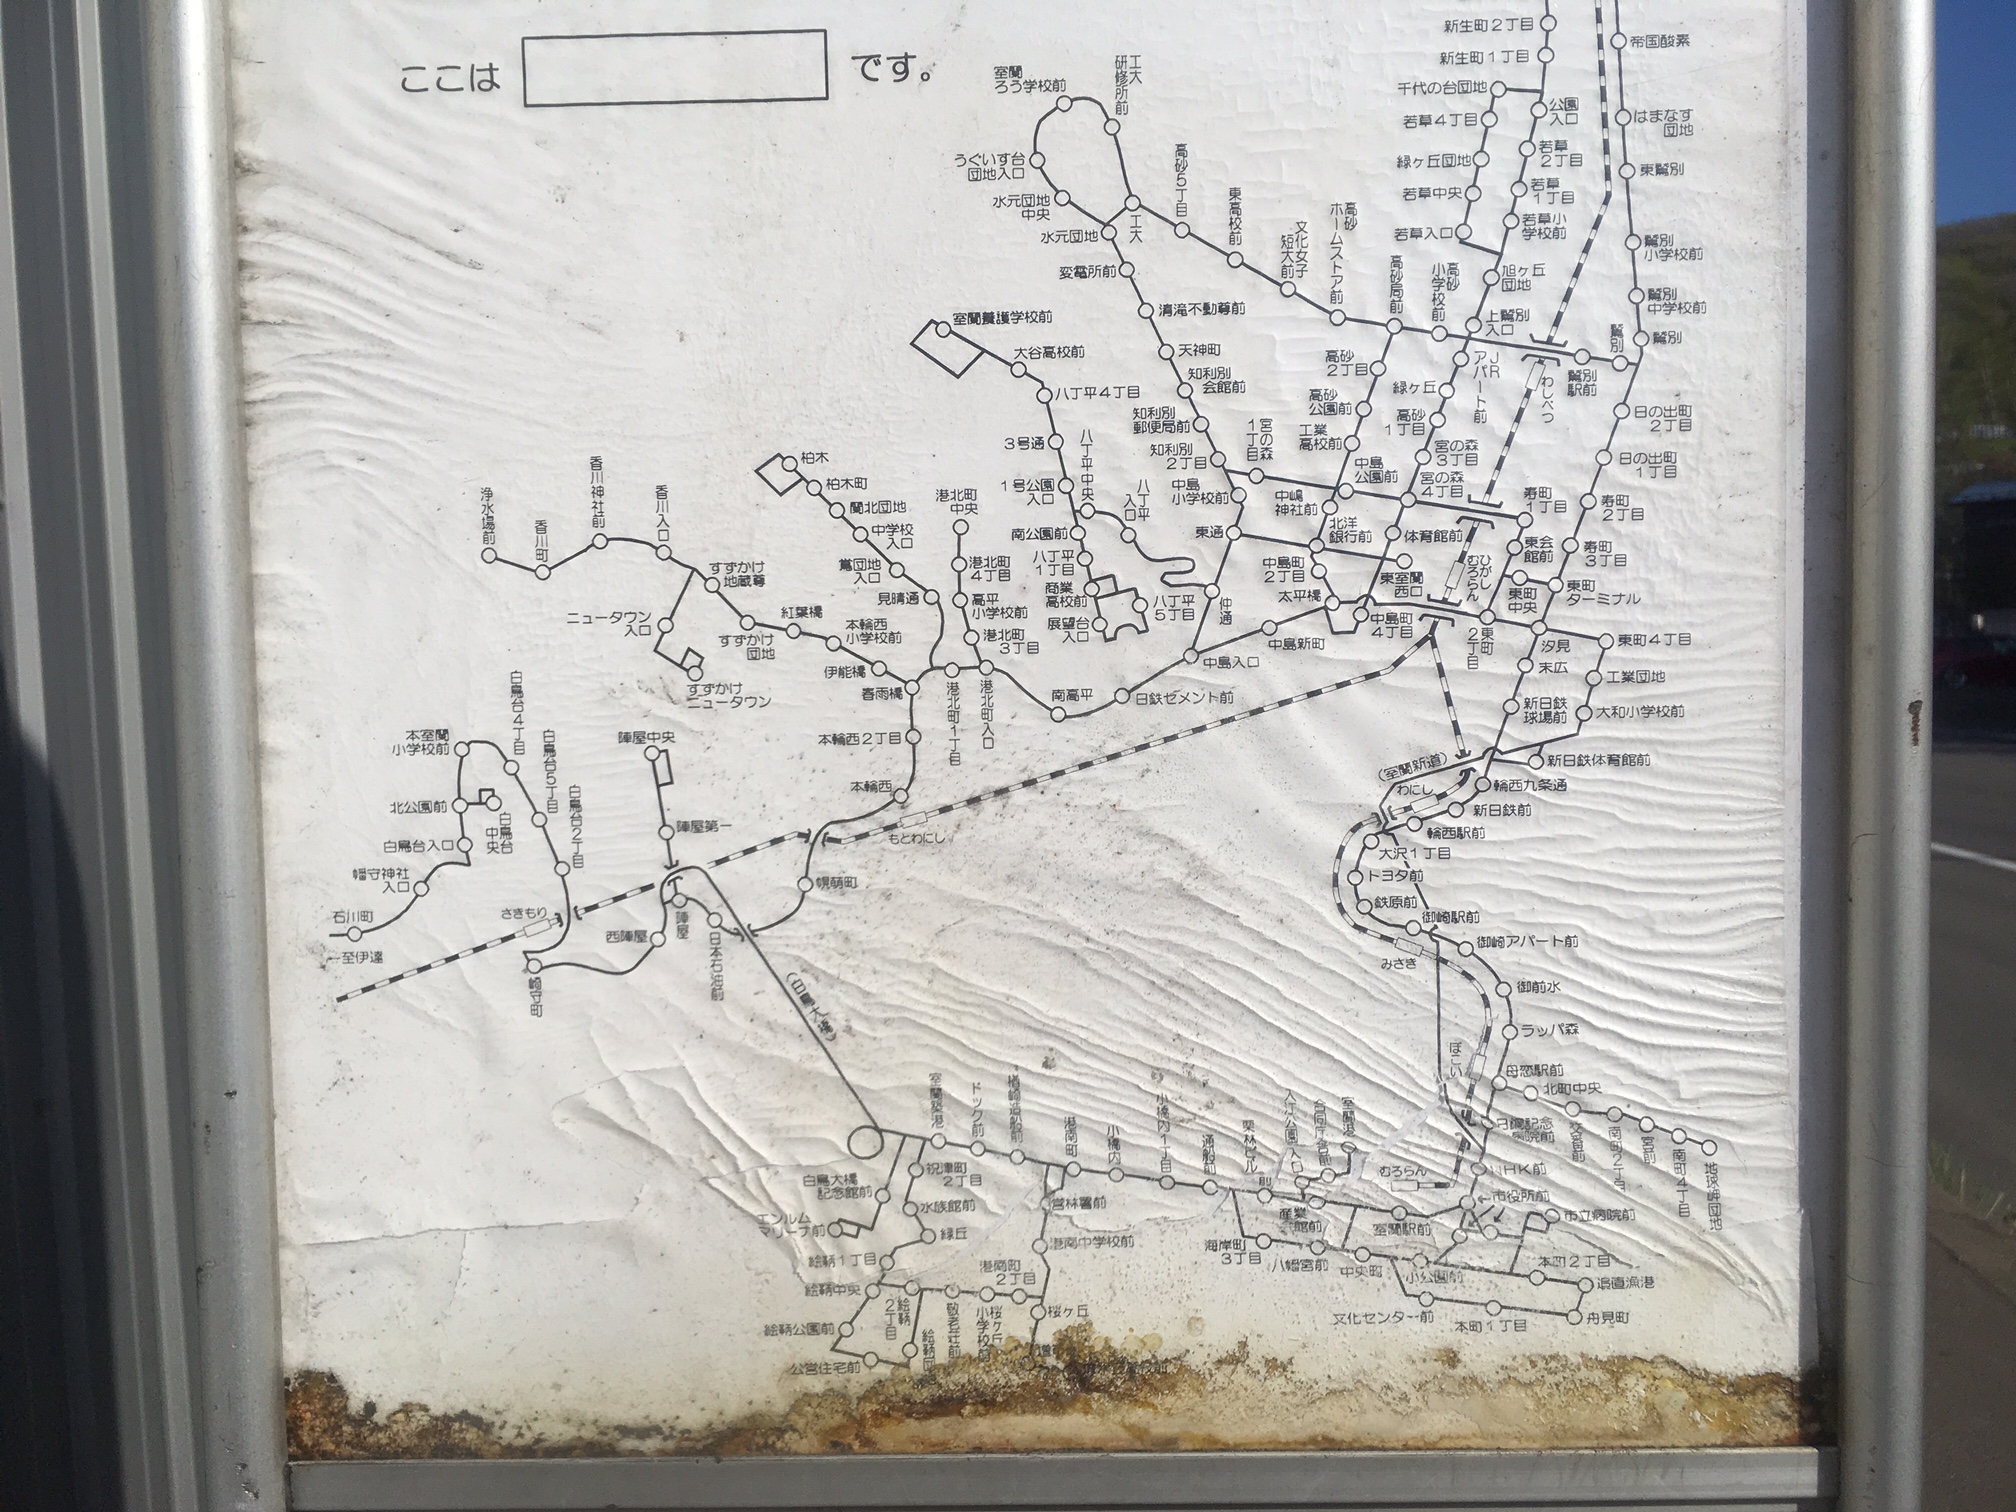 ここは です。
新生町2丁目
新生町1丁目
千代の台団地
若草4丁目
緑ヶ丘団地
若草中央
若草入口
公園入口
若草2丁目
若草1丁目
若草小学校前
旭ヶ丘団地
上鷲別入口
帝国酸素
はまなす団地
東鷲別
鷲別小学校前
鷲別中学校前
鷲別
鷲別
鷲別駅前
わしべつ
日の出町2丁目
日の出町1丁目
寿町2丁目
寿町3丁目
寿町1丁目
室蘭ろう学校前
工大研修所前
うぐいす台団地入口
水元団地中央
水元団地
工大
高砂5丁目
東高校前
文化女子短大前
高砂ホームストア前
高砂局前
高砂小学校前
変電所前
清滝不動尊前
天神町
知利別会館前
知利別郵便局前
知利別2丁目
宮の森1丁目
中島小学校前
高砂2丁目
高砂公園前
工業高校前
中島公園前
中嶋神社前
JRアパート前
緑ヶ丘
高砂1丁目
宮の森3丁目
宮の森4丁目
北洋銀行前
体育館前
東通
中島町2丁目
東室蘭西口
太平橋
中島町4丁目
ひがしむろらん
東会館前
東町中央
東町ターミナル
東町2丁目
東町4丁目
汐見
末広
工業団地
新日鉄球場前
大和小学校前
新日鉄体育館前
室蘭養護学校前
大谷高校前
八丁平4丁目
3号通
八丁平中央
1号公園入口
八丁平入口
南公園前
八丁平1丁目
商業高校前
展望台入口
八丁平5丁目
仲通
中島新町
中島入口
日鉄セメント前
南高平
柏木
柏木町
蘭北団地
中学校入口
鴬団地入口
見晴通
港北町中央
港北町4丁目
高平小学校前
港北町3丁目
港北町入口
港北町1丁目
浄水場前
香川町
香川神社前
香川入口
すずかけ地蔵尊
ニュータウン入口
すずかけニュータウン
すずかけ団地
紅葉橋
本輪西小学校前
伊能橋
春雨橋
本輪西2丁目
本輪西
もとわにし
幌萌町
本室蘭小学校前
白鳥台4丁目
白鳥台5丁目
白鳥台2丁目
北公園前
白鳥台中央
白鳥台入口
幡守神社入口
石川町
←至伊達
さきもり
崎守町
陣屋中央
陣屋第一
陣屋
西陣屋
日本石油前
(白鳥大橋)
(室蘭新道)
わにし
輪西九条通
新日鉄前
輪西駅前
大沢1丁目
トヨタ前
鉄原前
御崎駅前
みさき
御崎アパート前
御前水
ラッパ森
ぼこい
母恋駅前
北町中央
交番前
南町2丁目
宮前
南町4丁目
地球岬団地
日鋼記念病院前
NHK前
市役所前
市立病院前
むろらん
室蘭駅前
室蘭築港
ドック前
楢崎造船前
港南町
小橋内
小橋内1丁目
通船前
栗林ビル前
入江公園入口
合同庁舎前
室蘭港
産業会館前
海岸町3丁目
八幡宮前
中央町
小公園前
本町2丁目
追直漁港
舟見町
本町1丁目
文化センター前
白鳥大橋記念館前
エンルムマリーナ前
祝津町2丁目
水族館前
緑丘
絵鞆1丁目
絵鞆中央
絵鞆2丁目
絵鞆公園前
公営住宅前
敬老荘前
桜ヶ丘小学校前
港南町2丁目
営林署前
港南中学校前
桜ヶ丘